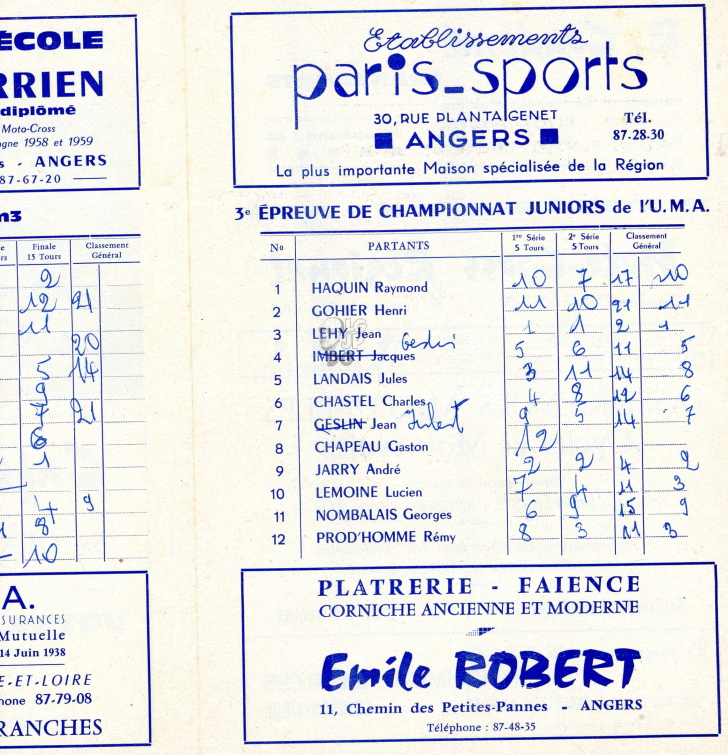 ÉCOLE
RRIEN
diplômé
Moto-Cross
gne 1958 et 1959
s - ANGERS
87-67-20
m3
e Finale Classement
rs 15 Tours Général
2
12 21
11
20
5 14
9
7 21
6
1
4 9
8
10
A.
SURANCES
Mutuelle
14 Juin 1938
E-ET-LOIRE
hone 87-79-08
RANCHES
Etablissements
paris-sports
30, RUE PLANTAGENET
ANGERS
Tél.
87.28.30
La plus importante Maison spécialisée de la Région
3e ÉPREUVE DE CHAMPIONNAT JUNIORS de l'U.M.A.
No PARTANTS 1re Série 2e Série Classement
5 Tours 5 Tours Général
1 HAQUIN Raymond 10 7 17 10
2 GOHIER Henri 11 10 21 11
3 LEHY Jean 1 1 2 1
4 IMBERT Jacques Geslin 5 6 11 5
5 LANDAIS Jules 3 11 14 8
6 CHASTEL Charles 4 8 12 6
7 GESLIN Jean Imbert 9 5 14 7
8 CHAPEAU Gaston 12
9 JARRY André 2 2 4 2
10 LEMOINE Lucien 7 4 11 3
11 NOMBALAIS Georges 6 9 15 9
12 PROD'HOMME Rémy 8 3 11 3
PLATRERIE - FAIENCE
CORNICHE ANCIENNE ET MODERNE
Emile ROBERT
11, Chemin des Petites-Pannes - ANGERS
Téléphone : 87-48-35